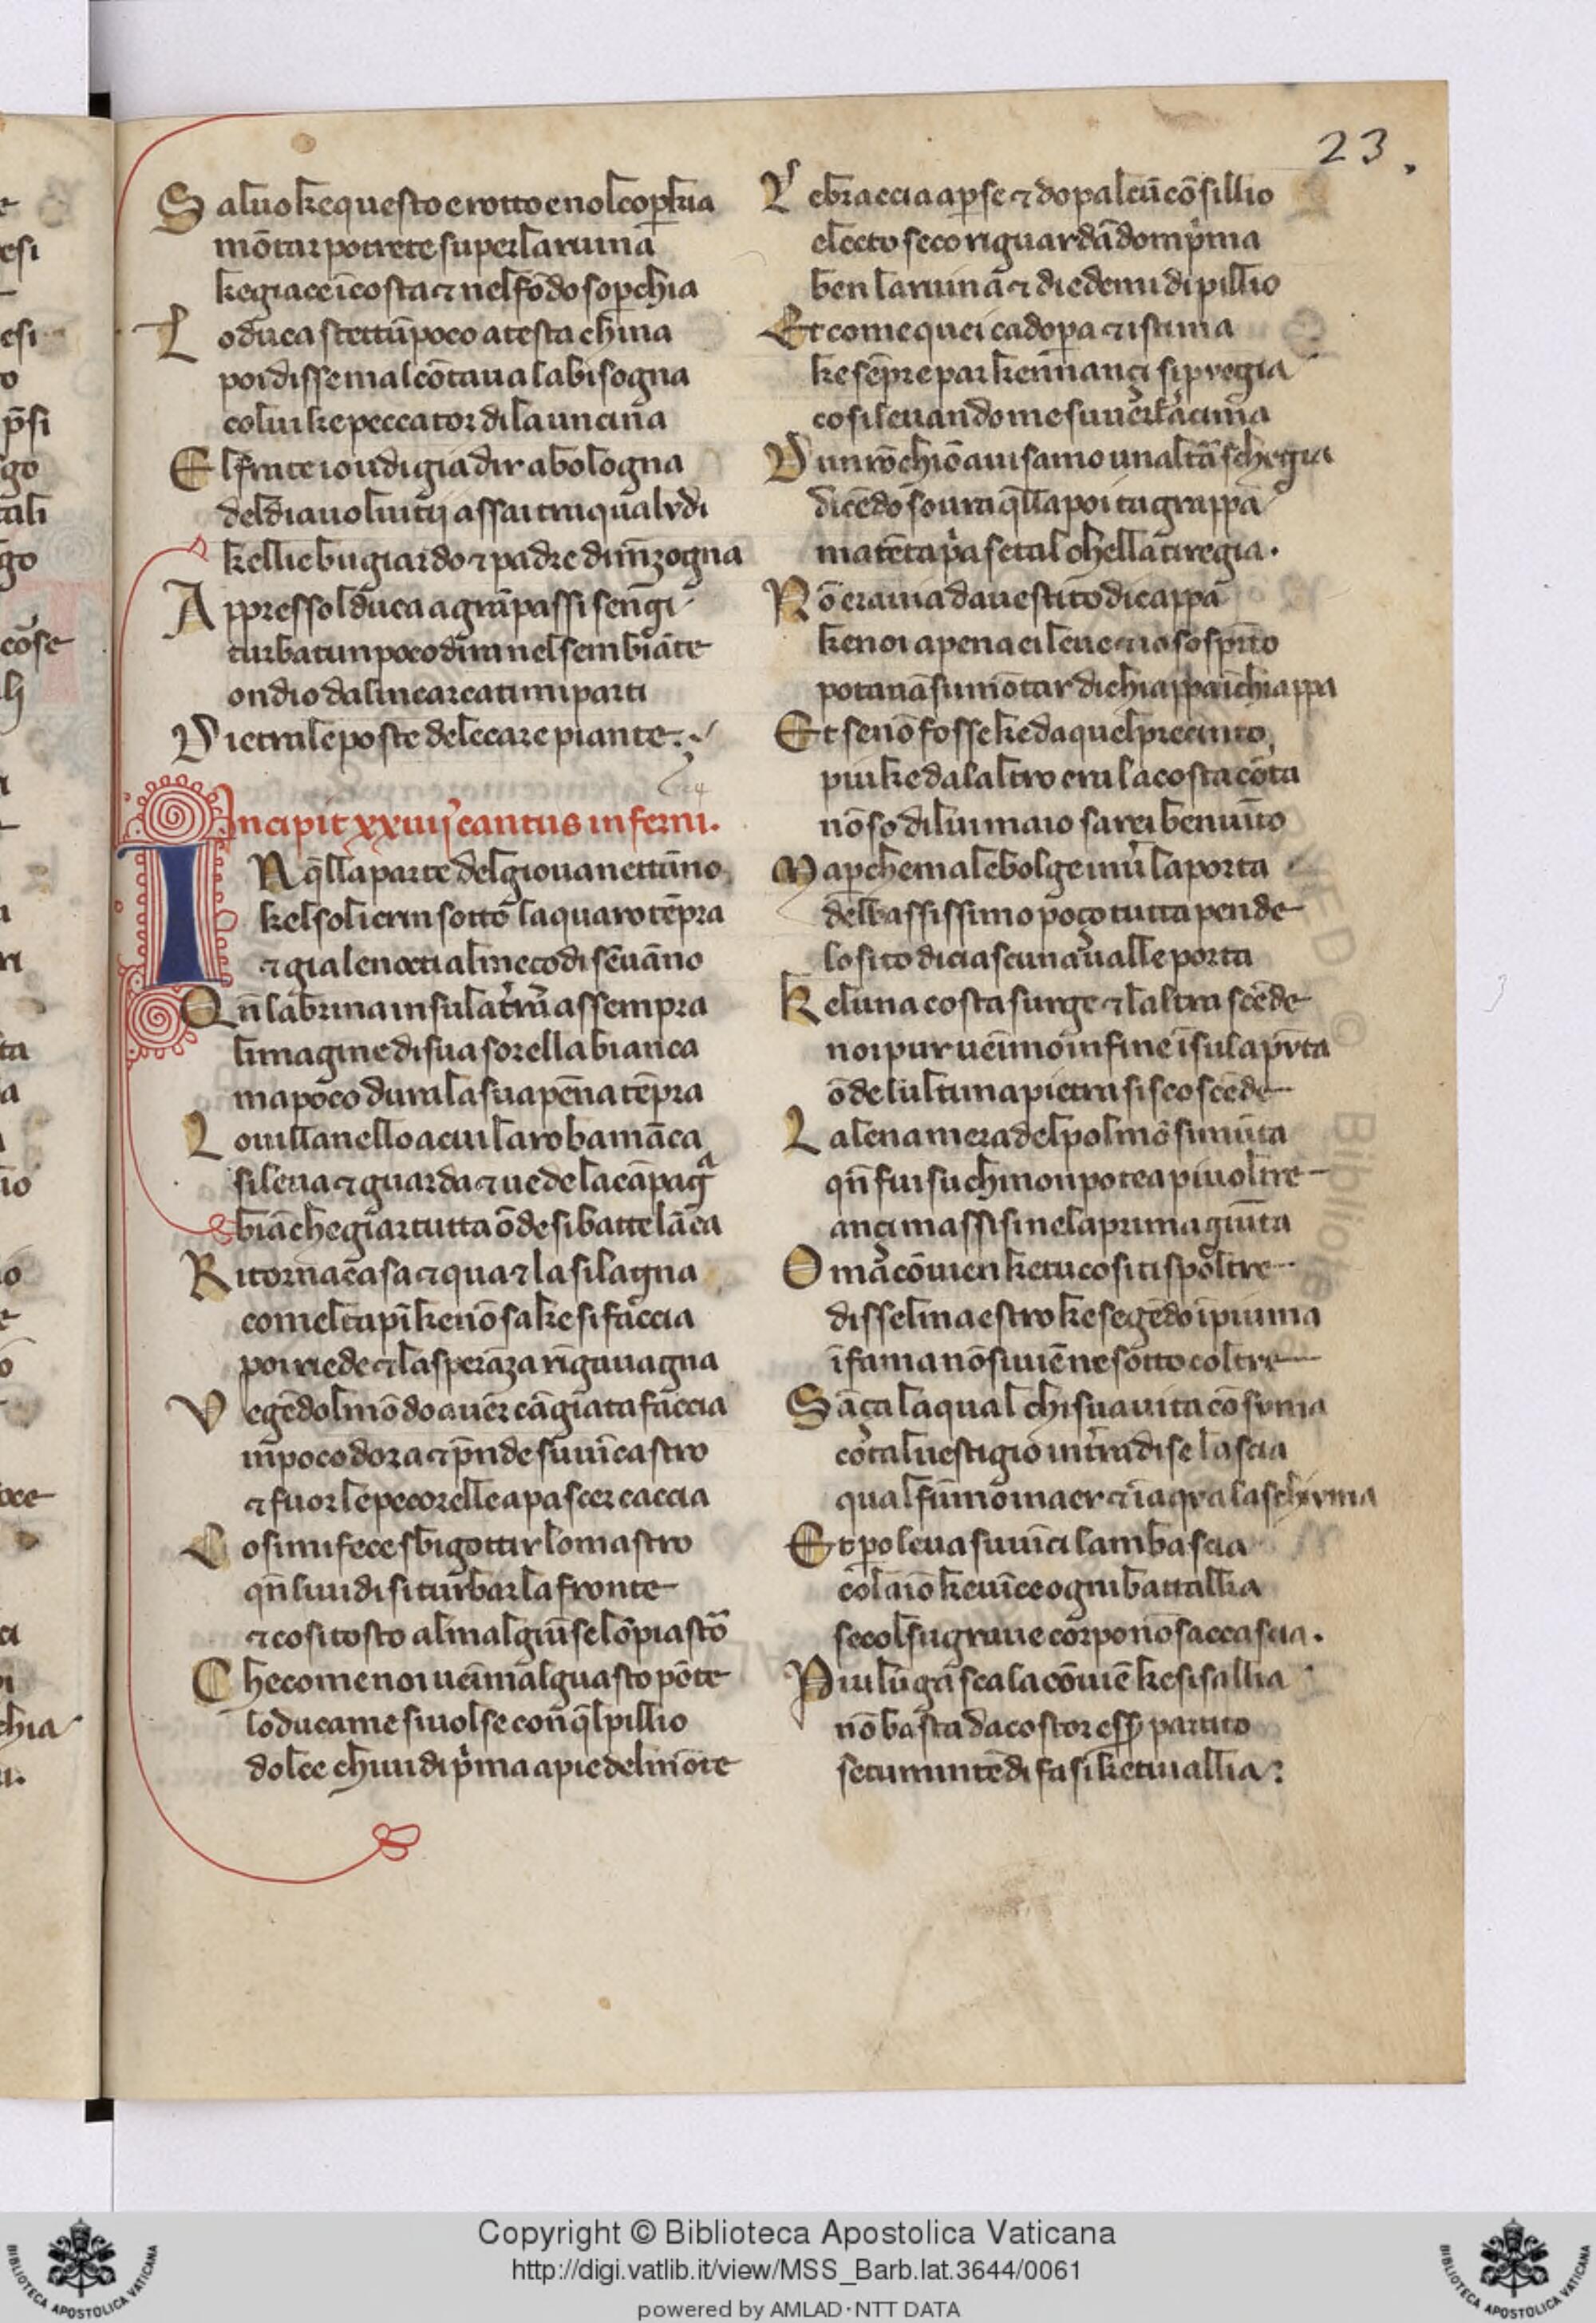 23.
Saluo ke questo e rotto e nol cop̄kia
mōtar potrete super la ruina
ke giace ī costa ⁊ nel fōdo sop̄chia
Lo duca stettū poco a testa china
poi disse mal cōtaua la bisogna
colui ke peccator di la uncina
El frate io udi gia dir a bologna
del diauol uitij assai tra quali vdi
kelli e bugiardo ⁊ padre di mēzogna
Appressol duca a grā passi sen gi
turbatun poco dira nel sembiāte
ondio dalincarcati mi parti
Dietrale poste dele care piante.
Incipit xxiiij cantus inferni.
IN q̄lla parte del giouanettāno
kel sole i crin sotto laquaro tēpra
⁊ gia le nocti al meço di sen uāno
Qn̄ la brina in su la tr̄ra assempra
limagine di sua sorella bianca
ma poco dura la sua penna tēpra
Lo uillanello a cui la roba māca
si leua ⁊ guarda ⁊ uede la cāpagͣ
biācheg̃iar tutta ōde si batte lāca
Ritorna ī casa ⁊ qua ⁊ la si lagna
comel tapī ke nō sa ke si faccia
poi riede ⁊ la sperāza rīgauagna
Vegēdol mōdo auer cāgiata faccia
ī poco dora ⁊ p̄nde suuīcastro
⁊ fuor le pecorelle a pascer caccia
Cosi mi fece sbigottir lo mastro
qn̄ lui udi si turbar la fronte
⁊ cosi tosto al mal giūse lo īpiastro
Che come noi ueīmal guasto pōte
lo duca me si uolse con q̄l pillio
dolce chiuidi pͥma a pie del mōte
Le braccia ap̄se ⁊ dopalcū cōsillio
electo seco riguardādo pͥma
ben la ruina ⁊ diedemi di pillio
Et come quei cadop̄a ⁊ istima
ke sēpre par kennançi si p̄vegia
cosi leuando me suuer la cima
Dun rōchiō auisamo unaltra schegia
dicēdo soura q̄lla poi ta grappa
ma tēta pͥa se tal chella ti regia.
Nō era uia da uestito di cappa
ke noi a pena ei leue ⁊ io sospīto
potauā su mōtar di chiappa ī chiappa
Et se nō fosse ke da quel precinto
piu ke dalaltro era la costa corta
nō so di lui ma io sarei ben uīto
Ma perche malebolge inuer la porta
del bassissimo poço tutta pende
lo sito di ciascuna ualle porta
Ke luna costa surge ⁊ laltra scēde
noi pur ueīmo in fine ī su la pūta
ōde lultima pietra si scoscēde
La lena mera del polmō si mūta
qn̄ fui su chi non potea piu oltre
ançi massisi nela prima giūta
Omai cōuien ke tu cosi ti spoltre
dissel maestro ke segēdo ī piuma
ī fama nō si uiē ne sotto coltre
Sāça laqual chi sua uita cōsuma
cotal uestigio ī terra di se lascia
qual fūmo ī naer ⁊ ī aqua la schiuma
Et pero leua suuīci lambascia
cōlaīo ke uīce ogni battallia
se col su graue corpo nō saccascia.
Piu lūga scala cōuiē ke si sallia
nō basta da costor esser partito
se tu mintēdi fa si ke tiuallia:
Copyright © Biblioteca Apostolica Vaticana
http://digi.vatlib.it/view/MSS_Barb.lat.3644/0061
powered by AMLAD·NTT DATA